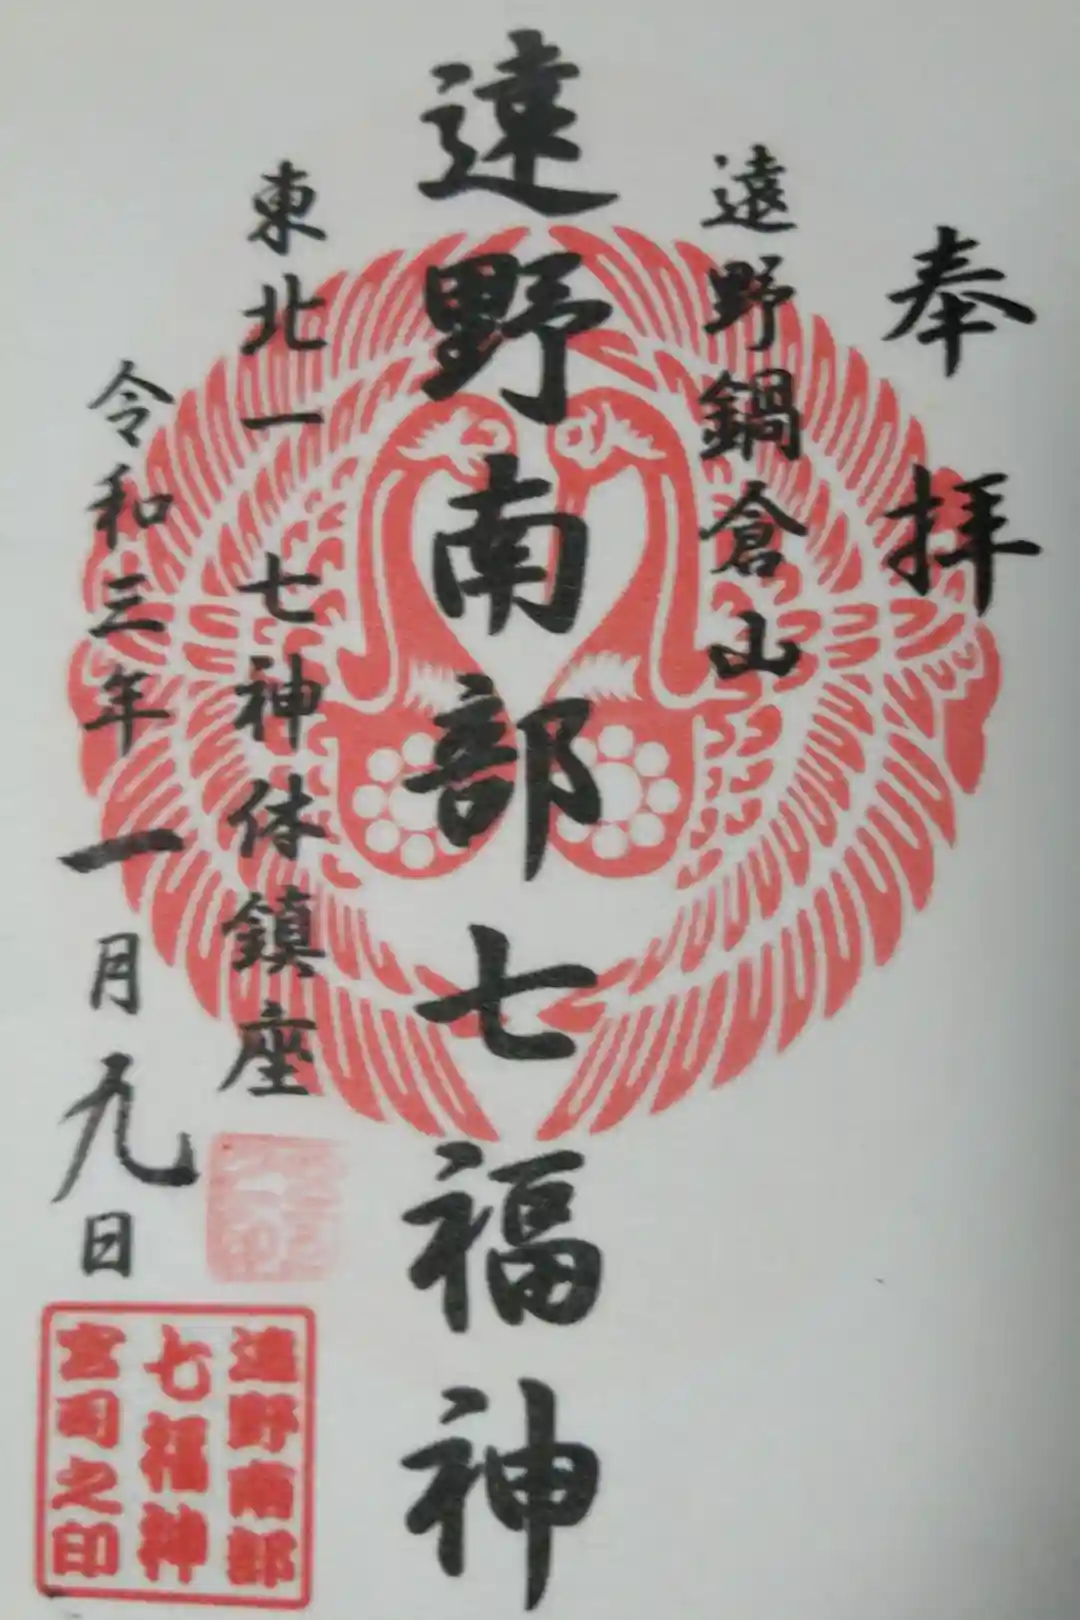 奉拝
遠野鍋倉山
遠野南部七福神
東北一 七神体鎮座
令和三年一月九日
遠野南部
七福神
宮司之印